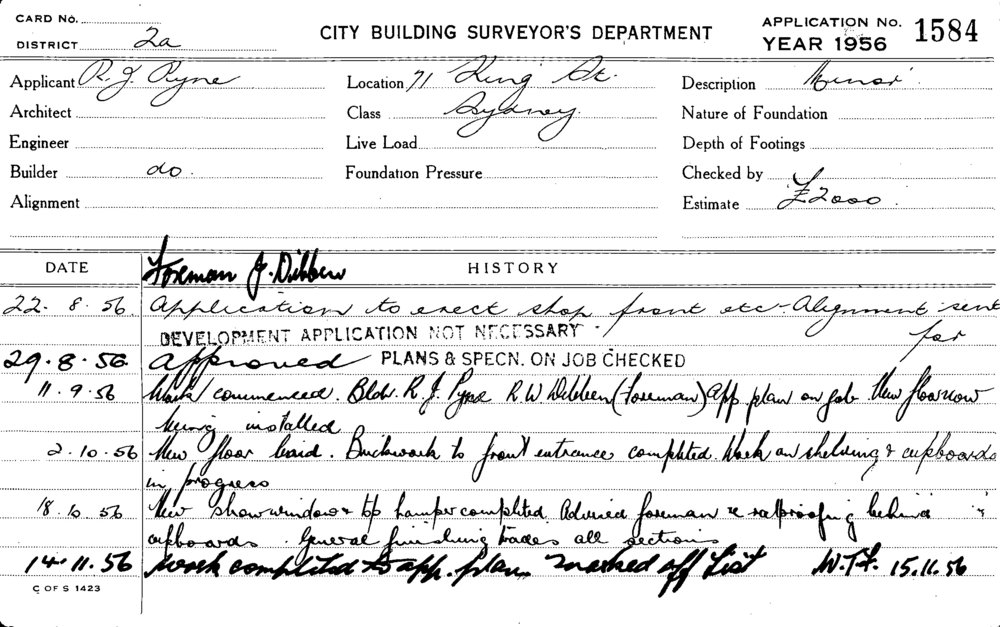 CARD No.
DISTRICT 2a
CITY BUILDING SURVEYOR'S DEPARTMENT
APPLICATION No. 1584
YEAR 1956
Applicant R. J. Pyne
Location 71 King St.
Description Minor
Architect
Class Sydney
Nature of Foundation
Engineer
Live Load
Depth of Footings
Builder do
Foundation Pressure
Checked by
Alignment
Estimate £2000
DATE
Foreman J. Dibben
HISTORY
22. 8. 56. Application to erect shop front etc - Alignment sent
for
DEVELOPMENT APPLICATION NOT NECESSARY
29.8.56 Approved PLANS & SPECN. ON JOB CHECKED
11.9.56 Work commenced. Bldr. R. J. Pyne R.W Dibben (Foreman) app plan on job New floor now
being installed
2.10.56 New floor laid. Brickwork to front entrance completed. Work on shelving & cupboards
in progress
18.10.56 New show window & top hamper completed. Advised foreman re ratproofing behind
cupboards. General finishing trades all sections
14.11.56 Work completed to app. plan. marked off List W.T.F. 15.11.56
C OF S 1423